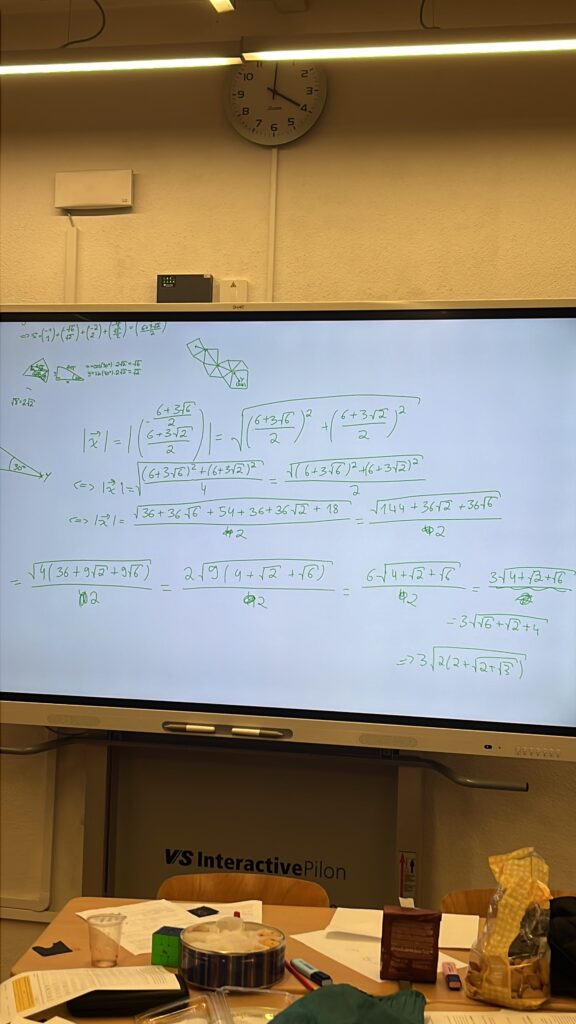 10 11 2 3 4 5 6 7 8 9
|x⃗| = |(-(6+3√6)/2 (6+3√2)/2)| = √(((6+3√6)/2)² + ((6+3√2)/2)²)
<=> |x⃗| = √(((6+3√6)²+(6+3√2)²)/4) = √((6+3√6)²+(6+3√2)²)/2
<=> |x⃗| = √(36+36√6+54+36+36√2+18)/2 = √(144+36√2+36√6)/2
= √(4(36+9√2+9√6))/2 = 2√(9(4+√2+√6))/2 = 6√(4+√2+√6)/2 = 3√(4+√2+√6)
= 3√(√6+√2+4)
=> 3√(2(2+√(2+√3)))
30°
VS InteractivePilon